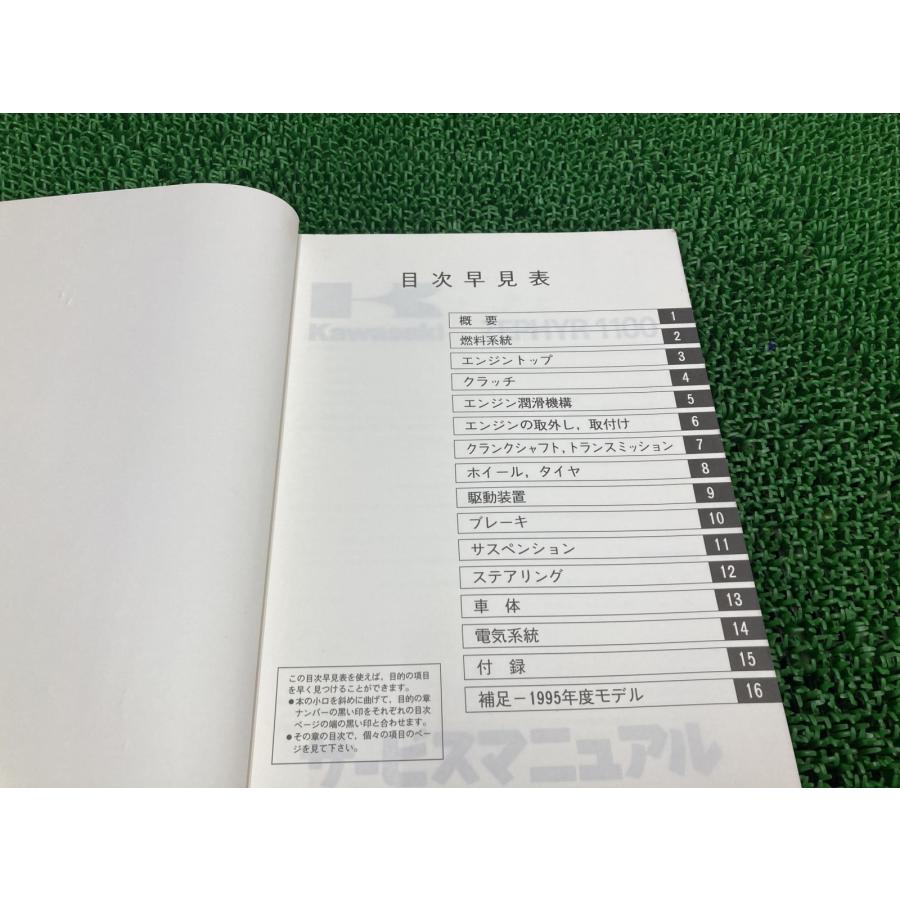 目次早見表
Kawasaki ZEPHYR 1100
概要 1
燃料系統 2
エンジントップ 3
クラッチ 4
エンジン潤滑機構 5
エンジンの取外し，取付け 6
クランクシャフト，トランスミッション 7
ホイール，タイヤ 8
駆動装置 9
ブレーキ 10
サスペンション 11
ステアリング 12
車体 13
電気系統 14
付録 15
補足－1995年度モデル 16
この目次早見表を使えば，目的の項目
を早く見つけることができます。
●本の小口を斜めに曲げて，目的の章
ナンバーの黒い印をそれぞれの目次
ページの端の黒い印と合わせます。
●その章の目次で，個々の項目のペー
ジを見て下さい。
サービスマニュアル